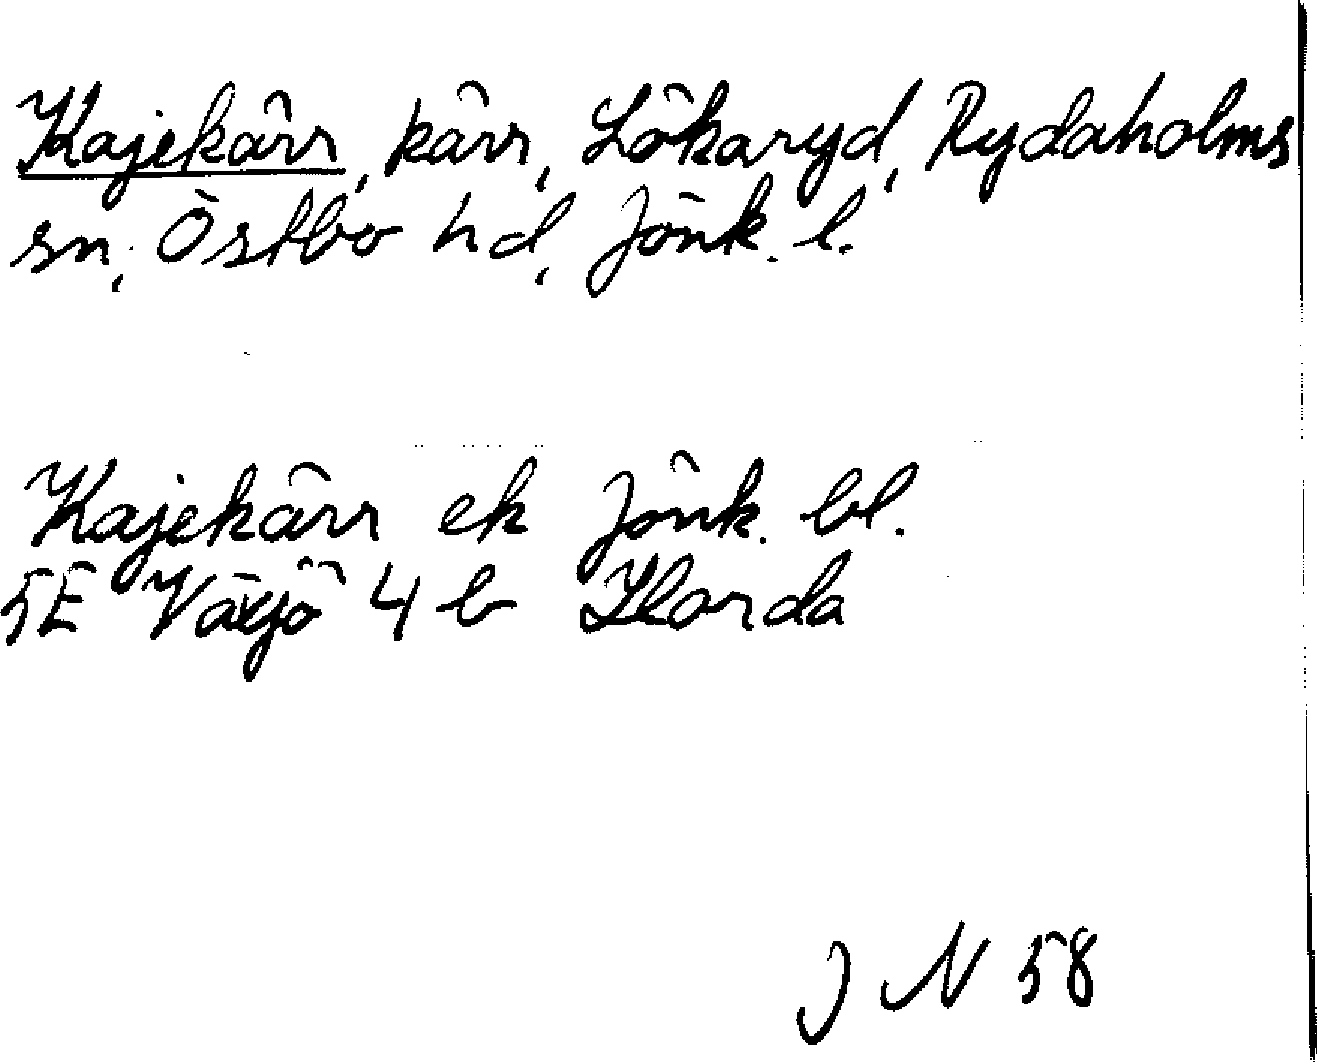 Kajekärr, kärr, Lökaryd, Rydaholms
sn, Östbo hd, Jönk. l.
Kajekärr ek Jönk. bl.
5E Växjö 4 b Horda
J N 58